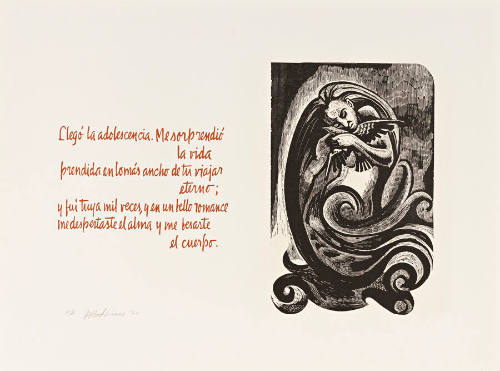 Llegó la adolescencia. Me sorprendió
la vida
prendida en lo más ancho de tu viajar
eterno;
y fui tuya mil veces, y en un bello romance
me despertaste el alma y me besaste
el cuerpo.